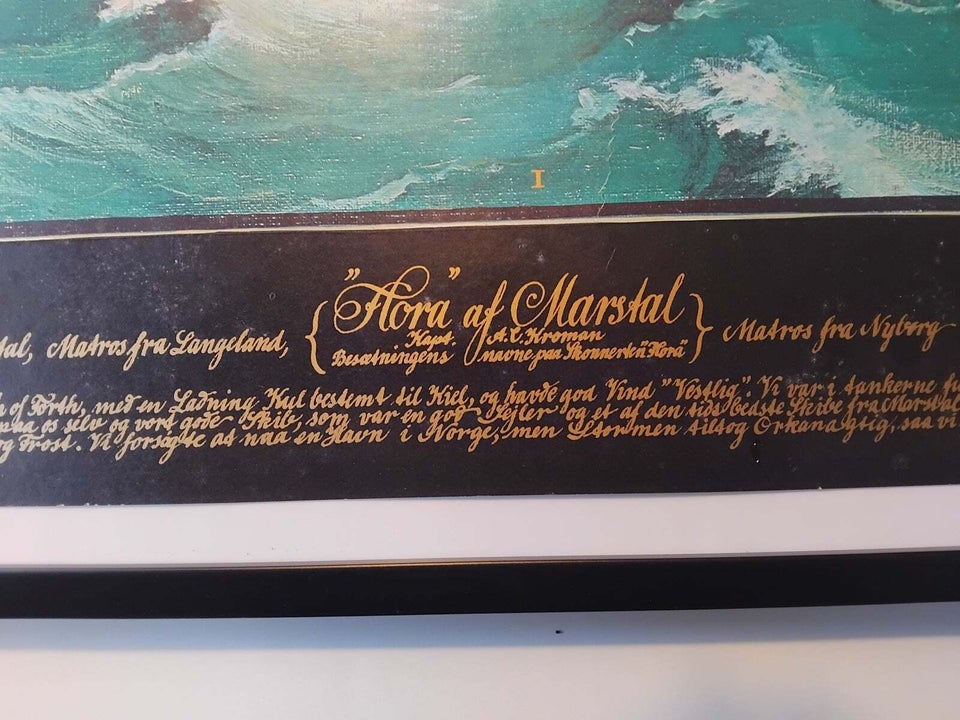 I
"Flora" af Marstal
tal, Matros fra Langeland, { Kapt. A. C. Kroman } Matros fra Nyborg
Besætningens navne paa Skonnerten "Flora"
of Forth, med en Ladning Kul bestemt til Kiel, og havde god Vind "Vestlig". Vi var i tankerne
paa os selv og vort gode Skib, som var en god Sejler og et af den tids bedste Skibe fra Marstal
og Frost. Vi forsøgte at naa en Havn i Norge, men Stormen tiltog Orkanagtig, saa vi